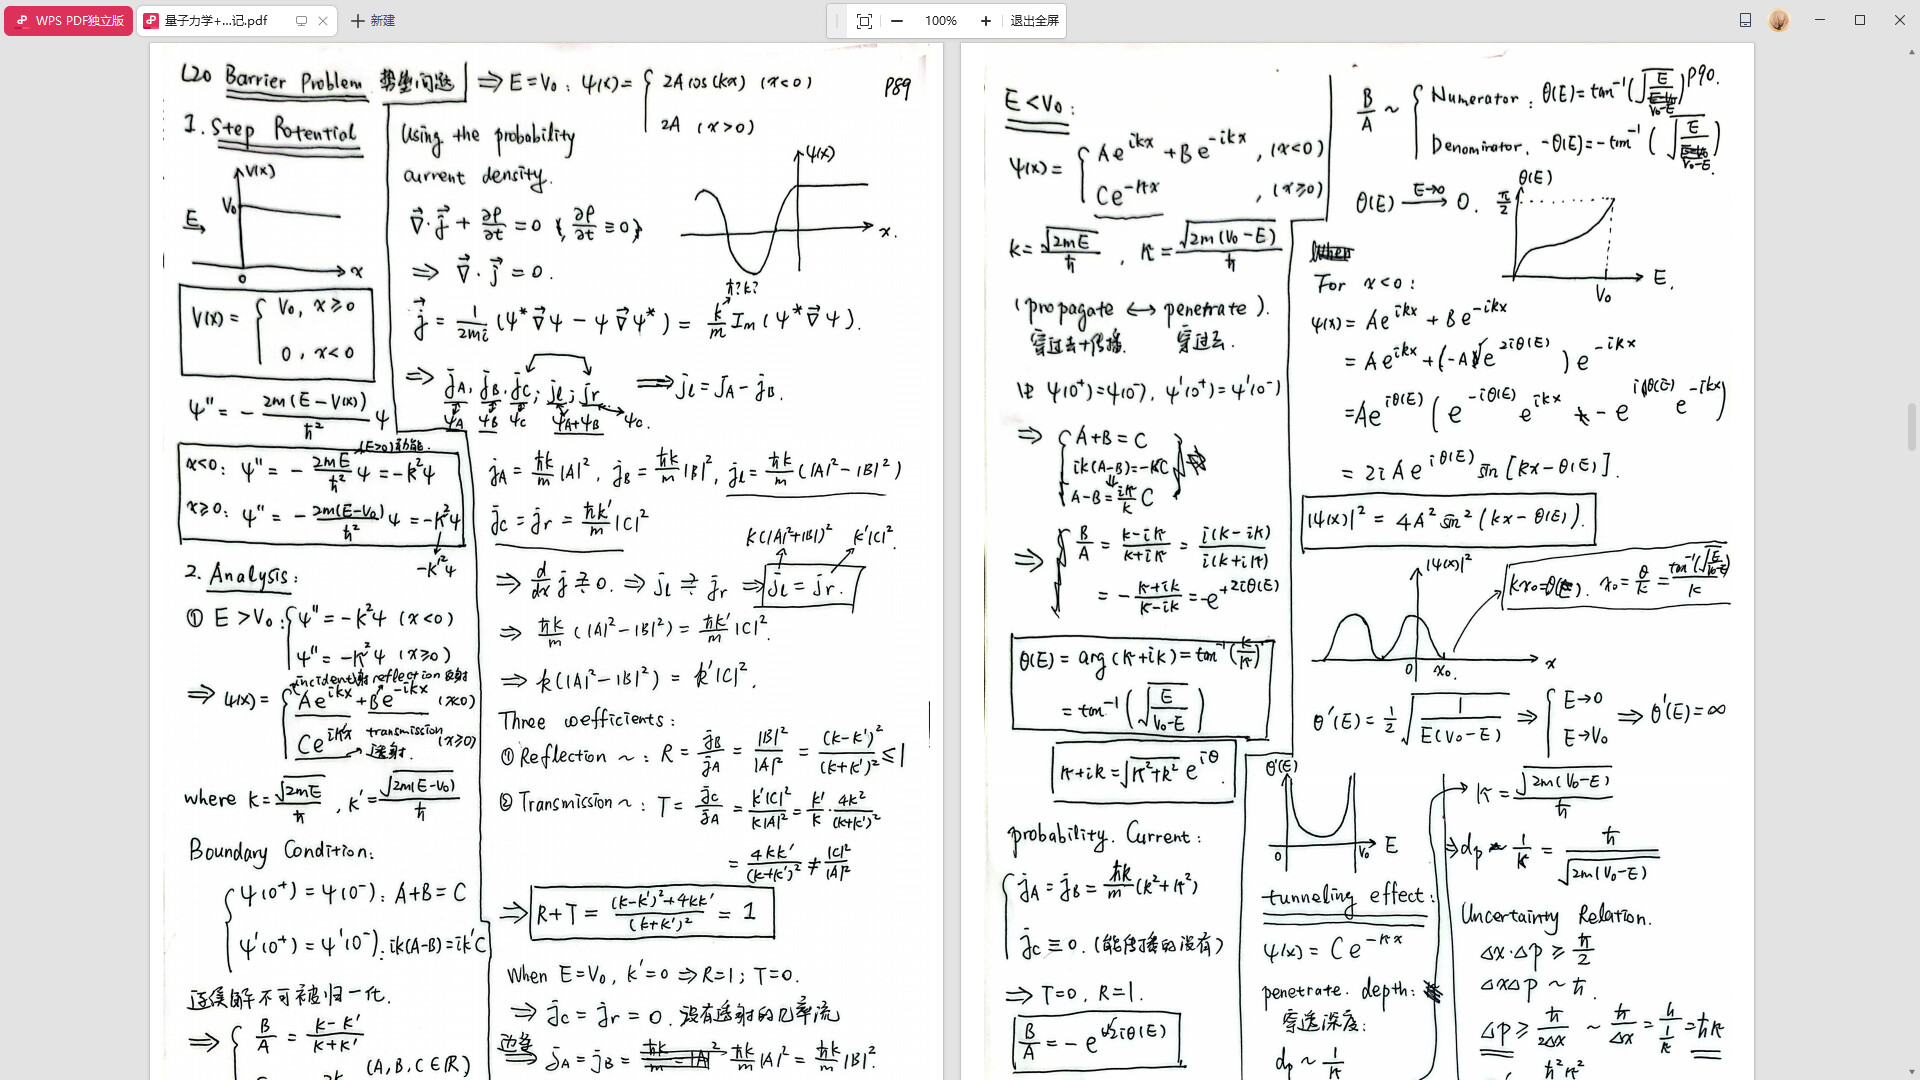 WPS PDF独立版
量子力学+...记.pdf
新建
100%
退出全屏
L20 Barrier Problem 势垒问题
1. Step Potential
V(x)
V₀
E
0
x
V(x) = { V₀, x ≥ 0
0, x < 0
ψ'' = - 2m(E-V(x))/ħ² ψ
(E>0)动能
x<0: ψ'' = - 2mE/ħ² ψ = -k²ψ
x≥0: ψ'' = - 2m(E-V₀)/ħ² ψ = -k²ψ
-k'²ψ
2. Analysis:
① E > V₀: { ψ'' = -k²ψ (x<0)
ψ'' = -k²ψ (x≥0)
incident入射 reflection反射
⇒ ψ(x) = { Ae^{ikx} + Be^{-ikx} (x<0)
Ce^{ik'x} transmission 透射. (x≥0)
where k = √(2mE)/ħ, k' = √(2m(E-V₀))/ħ
Boundary Condition:
{ ψ(0⁺) = ψ(0⁻): A+B = C
ψ'(0⁺) = ψ'(0⁻): ik(A-B) = ik'C
连续解不可被归一化.
⇒ { B/A = (k-k')/(k+k')
(A,B,C∈ℝ)
⇒ E = V₀: ψ(x) = { 2A cos(kx) (x<0)
2A (x>0)
P89
Using the probability
current density.
∇·j + ∂ρ/∂t = 0 {, ∂ρ/∂t ≡ 0}
⇒ ∇·j = 0.
ψ(x)
x.
ħ?k?
j = 1/2mi (ψ*∇ψ - ψ∇ψ*) = k/m Im(ψ*∇ψ).
⇒ j_A, j_B, j_C; j_l; j_r ⇒ j_l = j_A - j_B.
ψ_A ψ_B ψ_C ψ_{A+B} ψ_C.
j_A = ħk/m |A|², j_B = ħk/m |B|², j_l = ħk/m (|A|²-|B|²)
j_C = j_r = ħk'/m |C|²
k(|A|²+|B|)² k'|C|².
⇒ d/dx j ≟ 0. ⇒ j_l ≟ j_r ⇒ j_l = j_r.
⇒ ħk/m (|A|²-|B|²) = ħk'/m |C|².
⇒ k(|A|²-|B|²) = k'|C|².
Three coefficients:
① Reflection ~: R = j_B/j_A = |B|²/|A|² = (k-k')²/(k+k')² ≤ 1
② Transmission ~: T = j_C/j_A = k'|C|²/k|A|² = k'/k · 4k²/(k+k')²
= 4kk'/(k+k')² ≠ |C|²/|A|²
⇒ R+T = ((k-k')²+4kk')/(k+k')² = 1
When E=V₀, k'=0 ⇒ R=1; T=0.
⇒ j_C = j_r = 0. 没有透射的几率流
⇒ j_A = j_B = ħk/m |A|² = ħk/m |B|².
E < V₀:
ψ(x) = { Ae^{ikx} + Be^{-ikx}, (x<0)
Ce^{-κx}, (x≥0)
k = √(2mE)/ħ, κ = √(2m(V₀-E))/ħ
(propagate ↔ penetrate).
穿过去+传播. 穿过去.
由 ψ(0⁺)=ψ(0⁻), ψ'(0⁺)=ψ'(0⁻)
⇒ { A+B = C
ik(A-B) = -κC
A-B = iκ/k C
⇒ { B/A = (k-iκ)/(k+iκ) = i(k-iκ)/i(k+iκ)
= - (κ+ik)/(κ-ik) = -e^{+2iθ(E)}
θ(E) = arg(κ+ik) = tan⁻¹(k/κ)
= tan⁻¹(√(E/(V₀-E)))
κ+ik = √(κ²+k²) e^{iθ}.
probability. Current:
{ j_A = j_B = ħk/m (k²+κ²)
j_C ≡ 0. (能传播的没有)
⇒ T=0, R=1.
B/A = -e^{2iθ(E)}
P90.
B/A ~ { Numerator: θ(E) = tan⁻¹(√(E/(V₀-E)))
Denominator. -θ(E) = -tan⁻¹(√(E/(V₀-E)))
θ(E) →(E→0) 0.
θ(E)
π/2
V₀
E.
For x<0:
ψ(x) = Ae^{ikx} + Be^{-ikx}
= Ae^{ikx} + (-A e^{2iθ(E)}) e^{-ikx}
= Ae^{iθ(E)} (e^{-iθ(E)} e^{ikx} - e^{iθ(E)} e^{-ikx})
= 2iAe^{iθ(E)} sin[kx-θ(E)].
|ψ(x)|² = 4A² sin²(kx-θ(E)).
|ψ(x)|²
0 x₀. x
kx₀=θ(E). x₀ = θ/k = tan⁻¹(√(E/(V₀-E)))/k
θ'(E) = 1/2 √(1/(E(V₀-E))) ⇒ { E→0
E→V₀ ⇒ θ'(E) = ∞
θ'(E)
0 V₀ E
tunneling effect:
ψ(x) = Ce^{-κx}
penetrate. depth:
穿透深度:
dp ~ 1/κ
κ = √(2m(V₀-E))/ħ
⇒ dp ~ 1/κ = ħ/√(2m(V₀-E))
Uncertainty Relation.
Δx·Δp ≥ ħ/2
ΔxΔp ~ ħ.
Δp ≥ ħ/2Δx ~ ħ/Δx = ħ/(1/κ) = ħκ
ħ²κ²